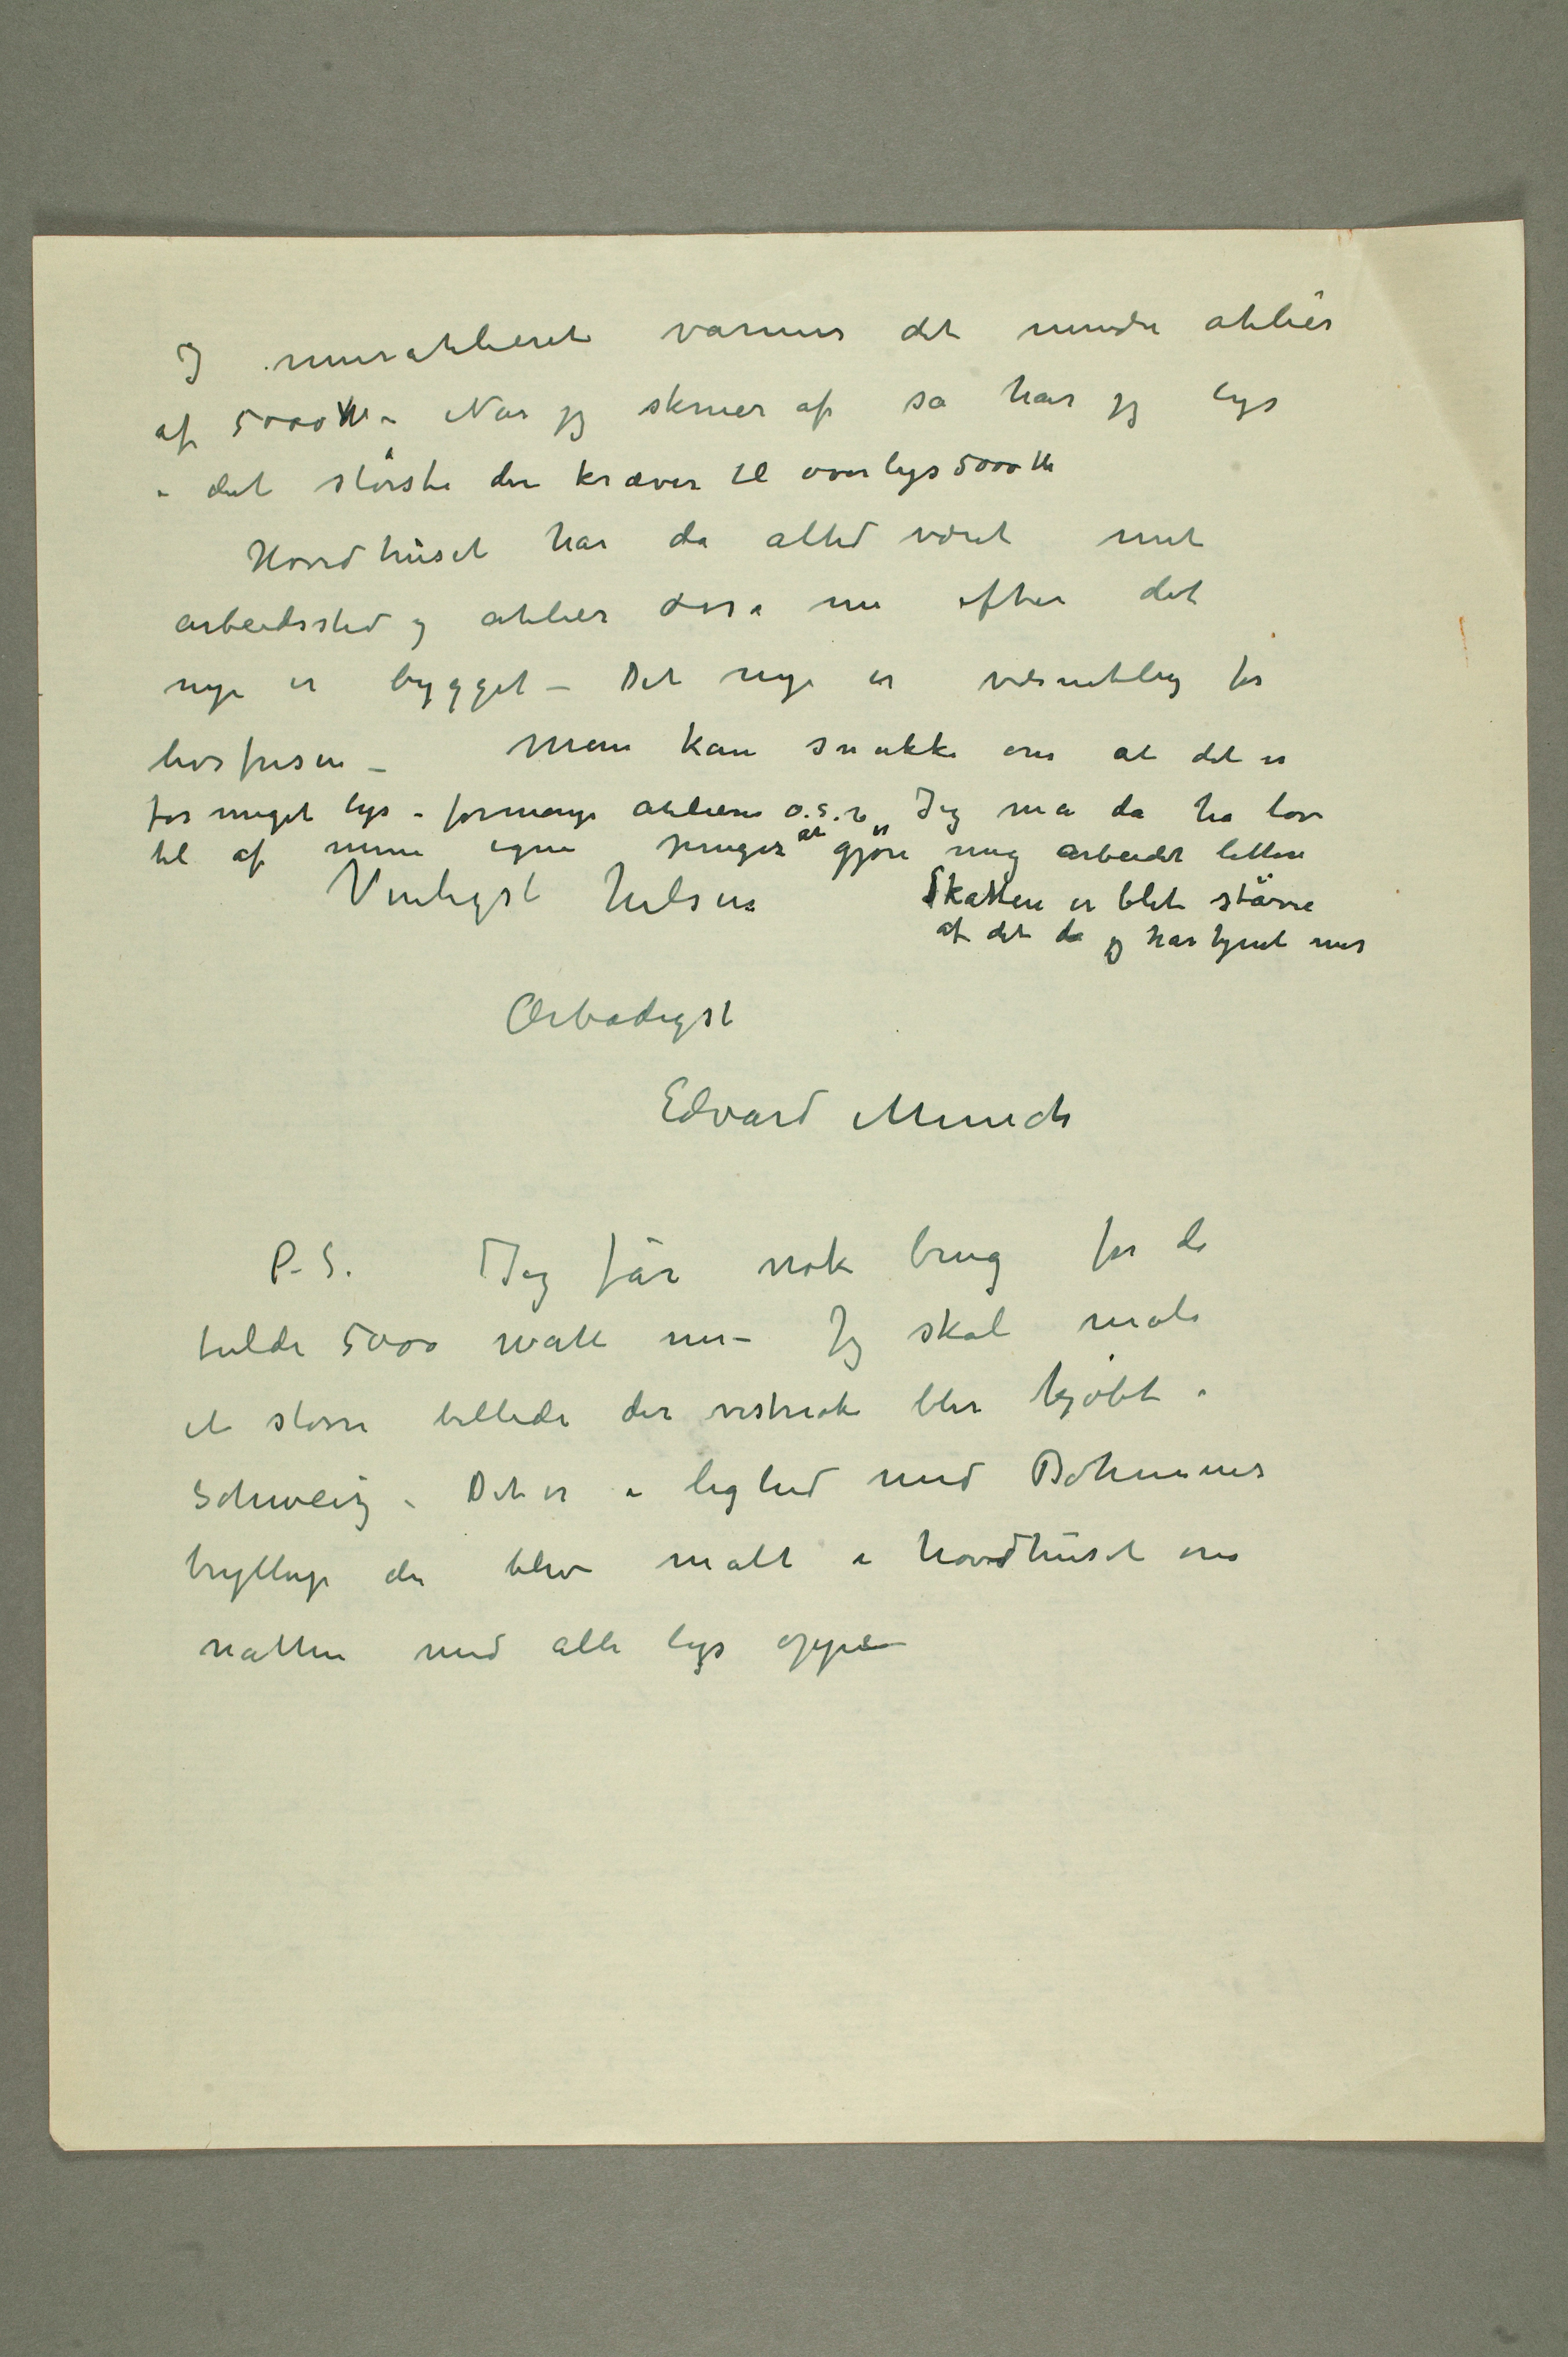 I muratelieret varmes det mindre atelier
af 5000 W – Når jeg skruer af så har jeg lys
i det störste der kræver til overlys 5000 W
Hovedhuset har da altid været mit
arbeidssted og atelier også nu efter det
nye er bygget – Det nye er væsentlig for
livsfrisen – Man kan snakke om at det er
for meget lys – formange atelierer o.s.v. Jeg må da ha lov
til af mine egne penger at gjøre mig arbeidet lettere
Venligst hilsen Skatten er blet större
af det da jeg har tjent mer
Ærbødigst
Edvard Munch
P.S. Jeg får nok brug for de
fulde 5000 watt nu – Jeg skal male
et større billede der vistnok blir kjøbt i
Schweiz – Det er i lighed med Bohemens
bryllup der blev malt i hovedhuset om
natten med alle lys oppe –